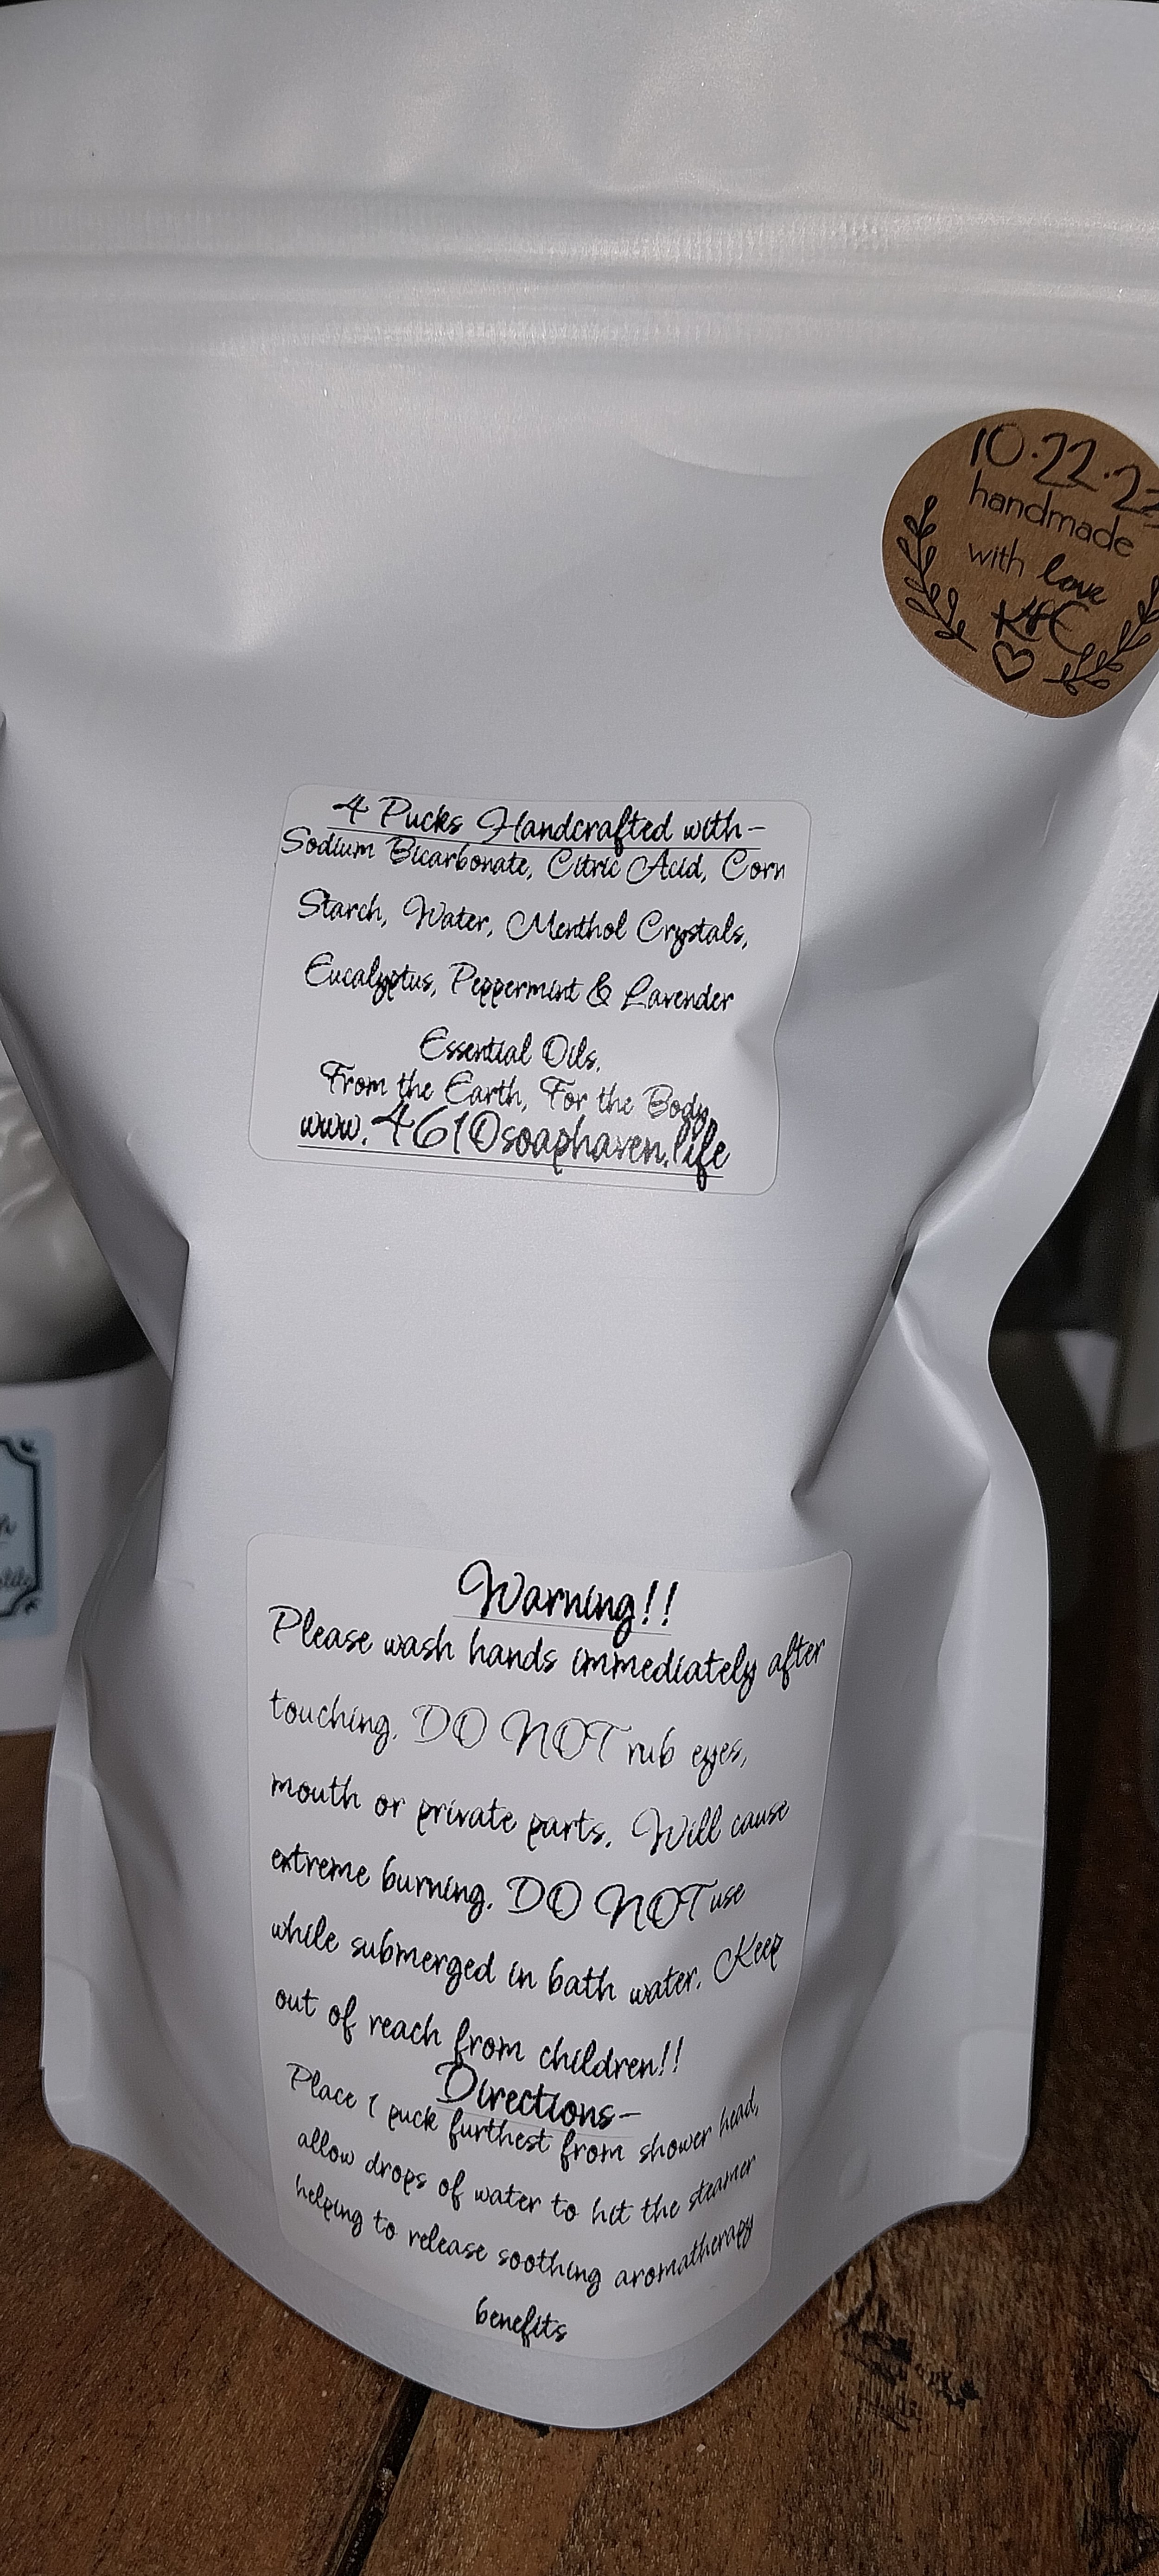 10·22·22
handmade
with love
4 Pucks Handcrafted with-
Sodium Bicarbonate, Citric Acid, Corn
Starch, Water, Menthol Crystals,
Eucalyptus, Peppermint & Lavender
Essential Oils.
From the Earth, For the Body
www.4610soaphaven.life
Warning!!
Please wash hands immediately after
touching. DO NOT rub eyes,
mouth or private parts. Will cause
extreme burning. DO NOT use
while submerged in bath water. Keep
out of reach from children!!
Directions-
Place 1 puck furthest from shower head,
allow drops of water to hit the steamer
helping to release soothing aromatherapy
benefits